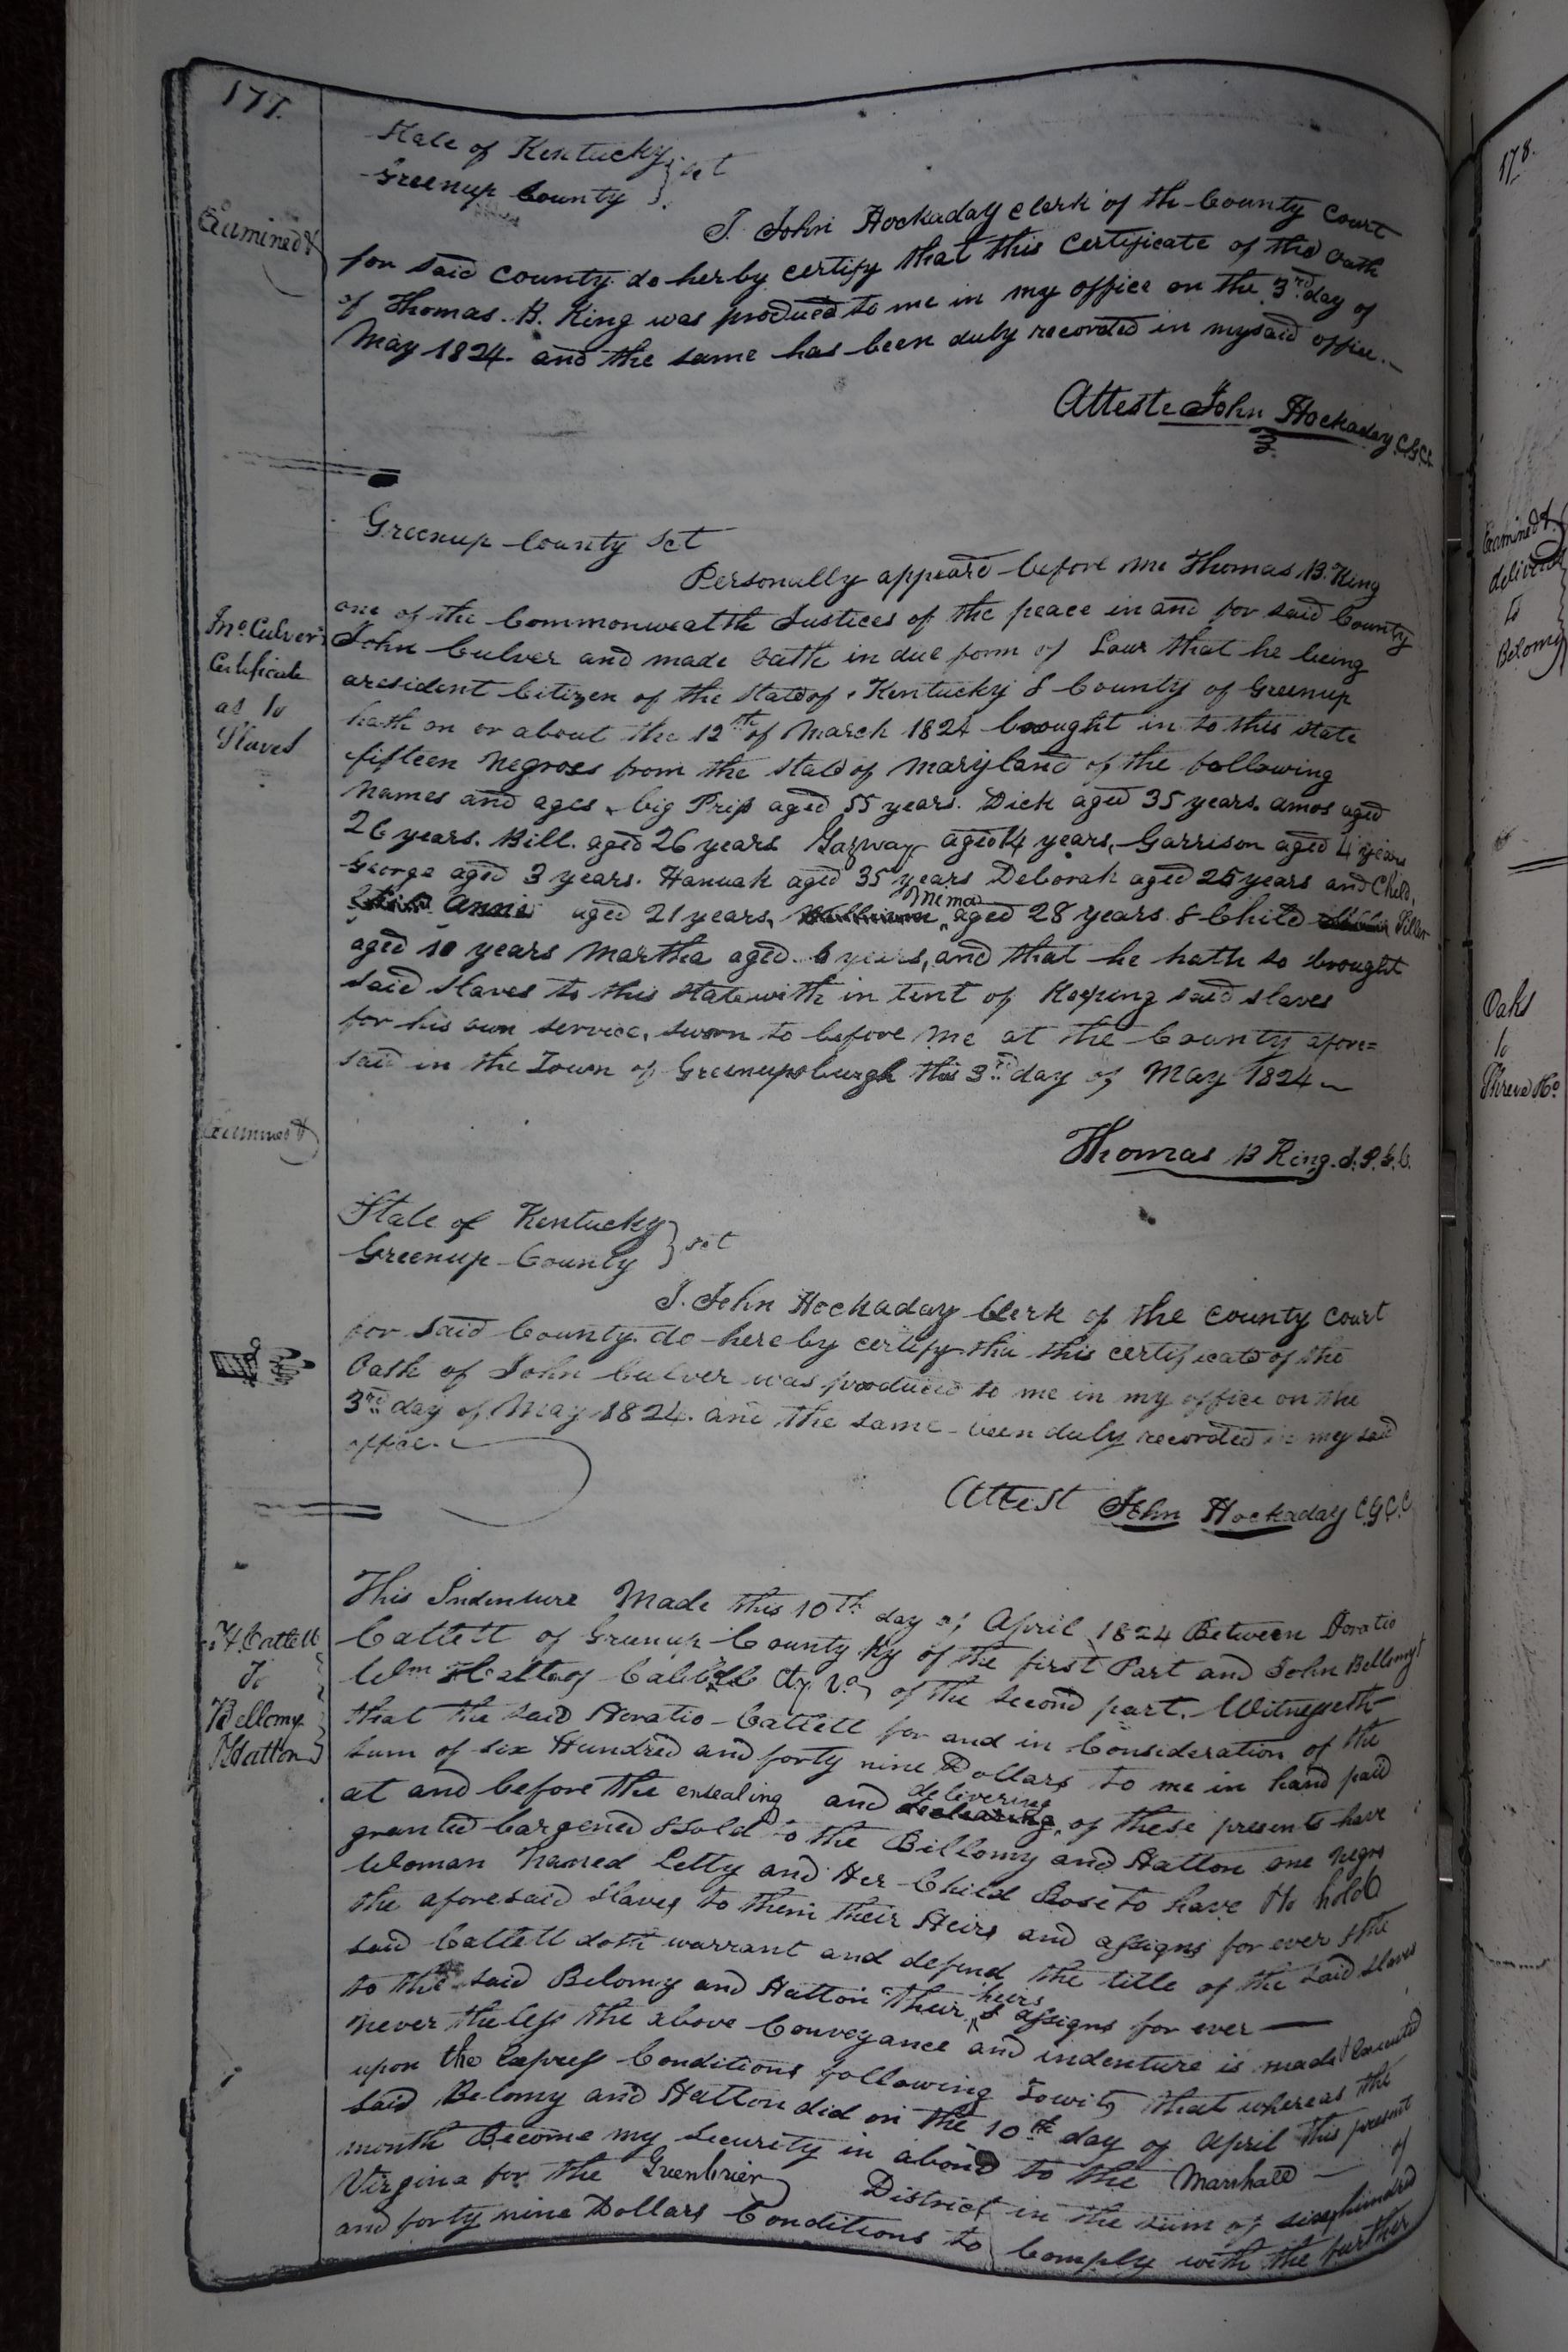 177.
State of Kentucky } sct
Greenup County
Examined &
I. John Hockaday clerk of th County Court
for said county do herby certify that this certificate of the oath
of Thomas. B. King was produced to me in my office on the 3rd day of
May 1824. and the same has been duly recorded in my said office.
Atteste John Hockaday C.G.C.C.
Greenup County Sct
Jno. Culver's
Certificate
as to
Slaves
Personally appeard before me Thomas B. King
one of the Commonwealth Justices of the peace in and for said County
John Culver and made oath in due form of Law that he being
aresident Citizen of the State of Kentucky & County of Greenup
hath on or about the 12th of March 1824 brought in to this state
fifteen Negroes from the State of Maryland of the following
Names and ages, big Pris aged 55 years. Dick aged 35 years. amos aged
26 years. Bill. aged 26 years Gazway aged 14 years, Garrison aged 4 years
George aged 3 years. Hannah aged 35 years Deborah aged 25 years and Child,
anne aged 21 years, Mima aged 28 years & Child
aged 10 years Martha aged 6 years, and that he hath so brought
said slaves to this state with in tent of Keeping said slaves
for his own service, sworn to before me at the County afore=
said in the Town of Greenupsburgh this 3rd day of May 1824
Examined &
Thomas B King. J.P.G.C.
State of Kentucky } sct
Greenup County
I. John Hockaday Clerk of the county court
for said County do hereby certify tha this certificate of the
Oath of John Culver was produced to me in my office on the
3rd day of May 1824. and the same been duly recorded in my said
office.
Attest John Hockaday C.G.C.C.
H. Catlett
To
Bellomy
Hatton
This Indenture Made this 10th day of April 1824 Between Horatio
Catlett of Greenup County Ky of the first Part and John Bellomy &
Wm Hatton of Cabell Cty Va of the second part. Witnesseth
that the said Horatio Catlett for and in Consideration of the
sum of six Hundred and forty nine Dollars to me in hand paid
at and before the ensealing and delivering of these presents have
granted bargened & sold to the Billomy and Hatton one negro
Woman named Letty and Her Child Rose to have & to hold
the aforesaid slaves to them their Heirs and assigns for ever & the
said Catlett doth warrant and defend the title of the said slaves
to the said Belomy and Hatton their heirs & assigns for ever
never the less the above Conveyance and indenture is made & Executed
upon the Express Conditions following Towit, that whereas the
said Belomy and Hatton did on the 10th day of April this present
month Become my security in a bond to the Marshall of
Virgina for the Greenbrier District in the sum of six hundred
and forty nine Dollars Conditions to Comply with the further
178.
Examined &
delivered
to
Belomy
Oaks
to
Shreve & Co